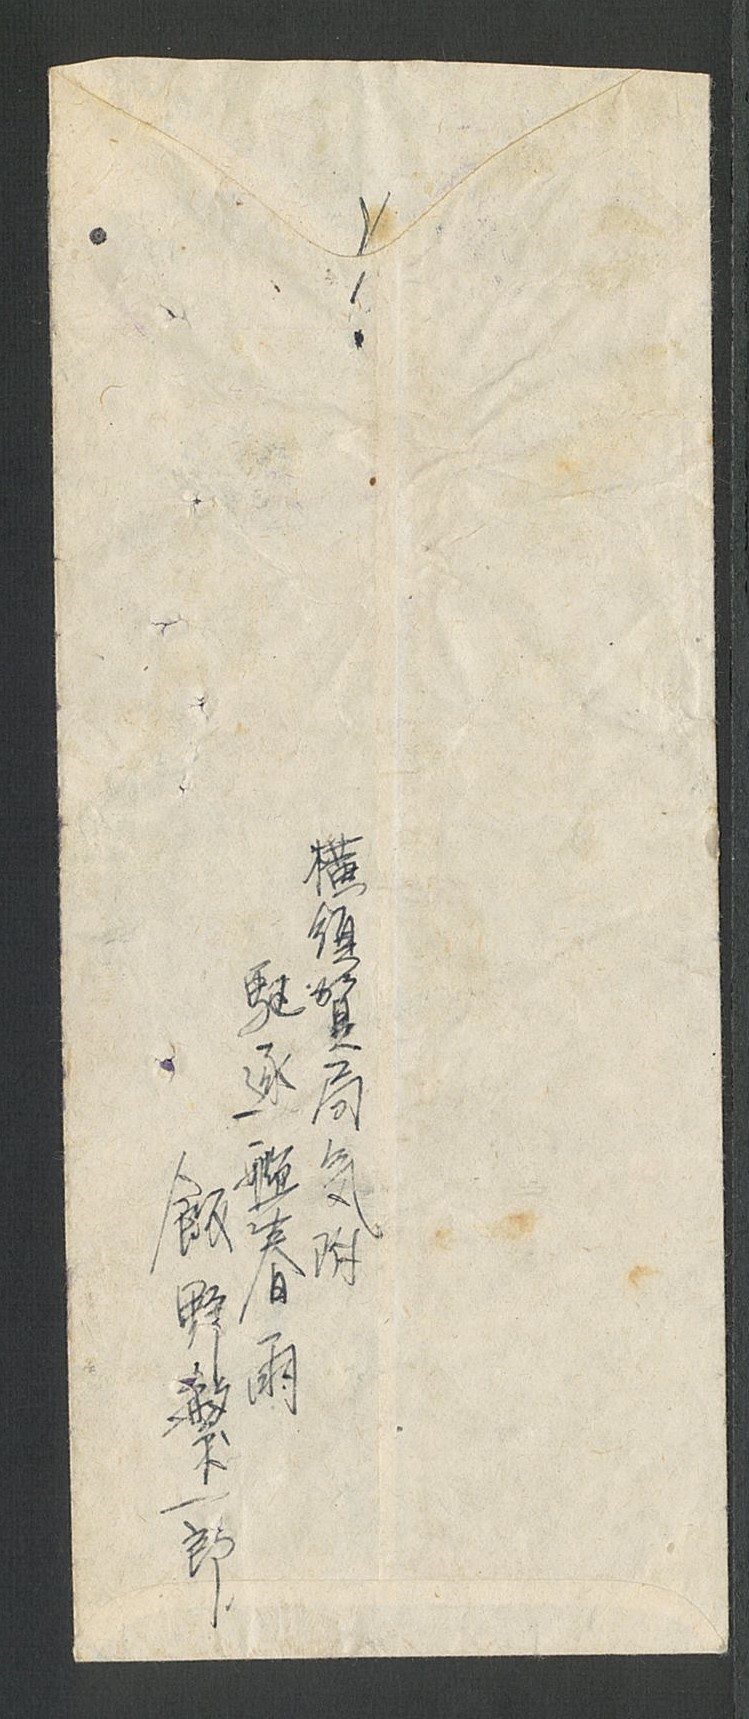 横須賀局気附
駆逐艦春雨
飯野繁一郎